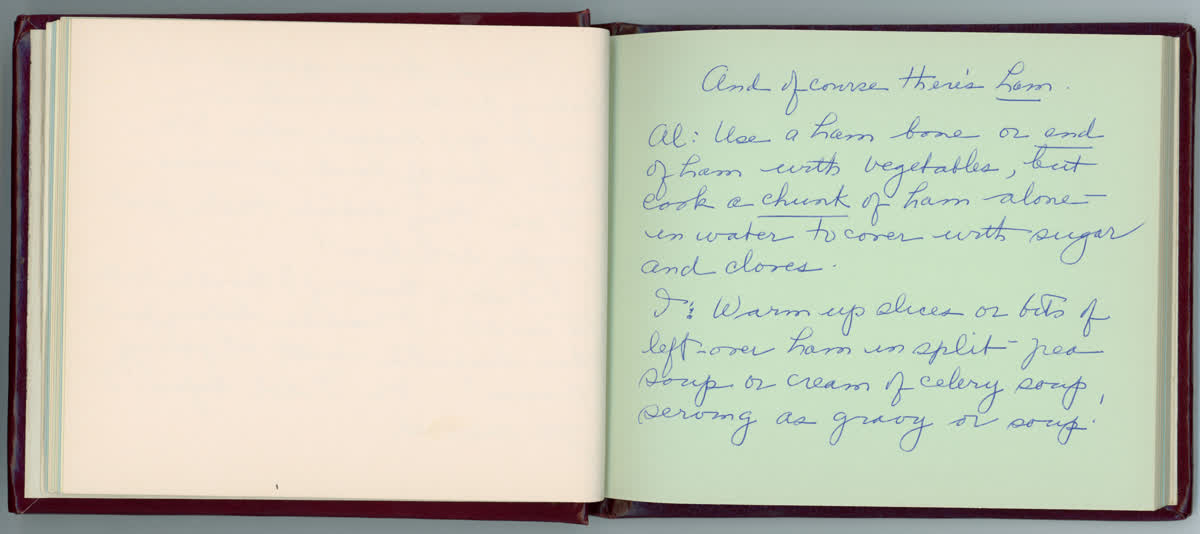 And of course there's ham.
Al: Use a ham bone or end
of ham with vegetables, but
cook a chunk of ham alone—
in water to cover with sugar
and cloves.
I: Warm up slices or bits of
left-over ham in split-pea
soup or cream of celery soup,
serving as gravy or soup.